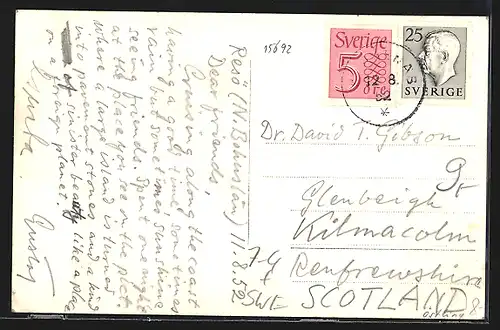 15692
Sverige
5
öre
25
SVERIGE
MAS
12 8.
52
Resö (N. Bohuslän) 11.8.52
Dear friends,
Cruising along the coast
having a good time, sometimes
rain but sometimes sunshine
seeing friends. Spent one night
at the place you see on the pict.
where a large island is turned
into pavement stones and a kind
of sinister beauty like a place
on a foreign planet.
Gustav
Dr. David T. Gibson
Glenbeigh
Kilmacolm
Renfrewshire
SCOTLAND